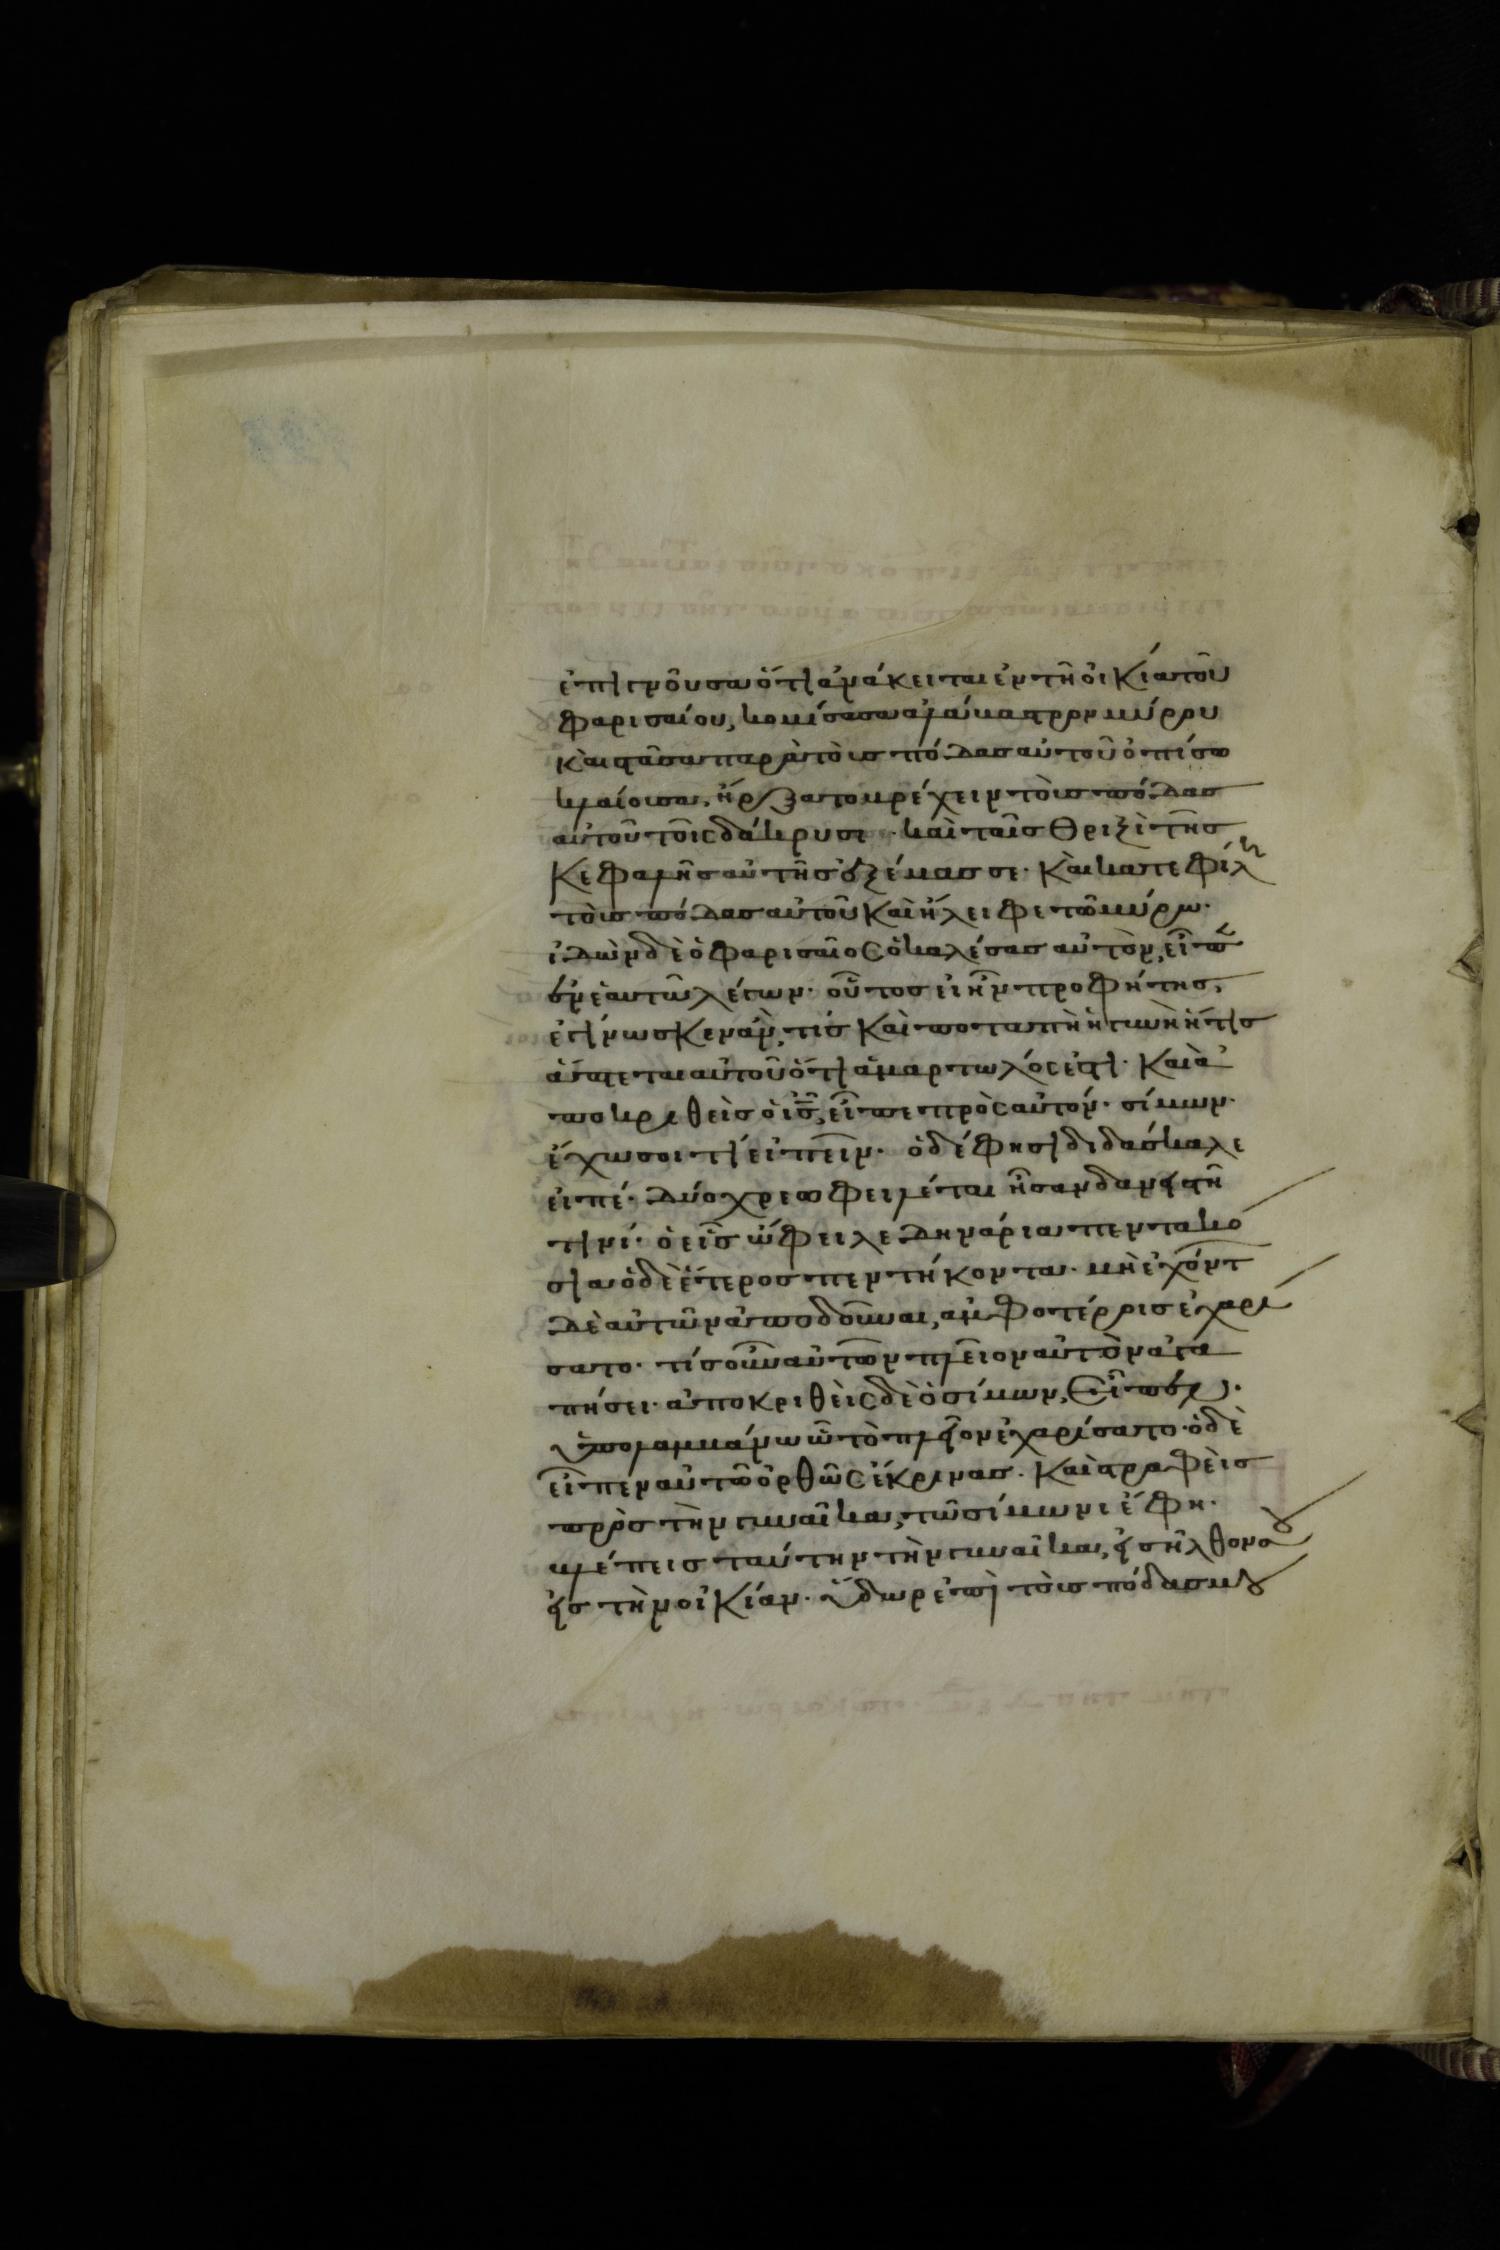 ἐπιγνοῦσα ὅτι ἀνάκειται ἐν τῆ οἰκία τοῦ
φαρισαίου, κομίσασα ἀλάβαστρον μύρου
καὶ στᾶσα παρὰ τοὺς πόδας αὐτοῦ ὀπίσω
κλαίουσα, ἤρξατο βρέχειν τοὺς πόδας
αὐτοῦ τοῖς δάκρυσι · καὶ ταῖς θριξὶ τῆς
κεφαλῆς αὐτῆς ἐξέμασσε · καὶ κατεφίλει
τοὺς πόδας αὐτοῦ καὶ ἤλειφε τῶ μύρω ·
ἰδὼν δὲ ὁ φαρισαῖος ὁ καλέσας αὐτὸν, εἶπεν
ἐν ἑαυτῶ λέγων · οὗτος εἰ ἦν προφήτης,
ἐγίνωσκεν ἂν, τίς καὶ ποταπὴ ἡ γυνὴ ἥτις
ἅπτεται αὐτοῦ ὅτι ἁμαρτωλός ἐστι · καὶ ἀ
ποκριθεὶς ὁ ις, εἶπε πρὸς αὐτόν · σίμων ·
ἔχω σοι τί εἰπεῖν · ὁ δέ φησι διδάσκαλε
εἰπέ · δύο χρεωφειλέται ἦσαν δανειστῆ
τινί · ὁ εἷς ὤφειλε δηνάρια πεντακό
σια ὁ δὲ ἕτερος πεντήκοντα · μὴ ἐχόντ
δὲ αὐτῶν ἀποδοῦναι, ἀμφοτέροις ἐχαρί
σατο · τίς οὖν αὐτῶν πλεῖον αὐτὸν ἀγα
πήσει · ἀποκριθεὶς δὲ ὁ σίμων, εἶπεν ·
ὑπολαμβάνω ὧ τὸ πλεῖον ἐχαρίσατο · ὁ δὲ
εἶπεν αὐτῶ ὀρθῶς ἔκρινας · καὶ στραφεὶς
πρὸς τὴν γυναῖκα, τῶ σίμωνι ἔφη ·
βλέπεις ταύτην τὴν γυναῖκα, εἰσῆλθον σου
εἰς τὴν οἰκίαν · ὕδωρ ἐπὶ τοὺς πόδας μου